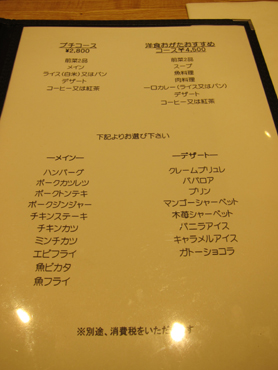 プチコース
¥2,800
前菜2品
メイン
ライス(白米)又はパン
デザート
コーヒー又は紅茶
洋食おがたおすすめ
コース¥4,500
前菜2品
スープ
魚料理
肉料理
一口カレー(ライス又はパン)
デザート
コーヒー又は紅茶
下記よりお選び下さい
―メイン―
ハンバーグ
ポークカツレツ
ポークトンテキ
ポークジンジャー
チキンステーキ
チキンカツ
ミンチカツ
エビフライ
魚ピカタ
魚フライ
―デザート―
クレームブリュレ
ババロア
プリン
マンゴーシャーベット
木苺シャーベット
バニラアイス
キャラメルアイス
ガトーショコラ
※別途、消費税をいただきます